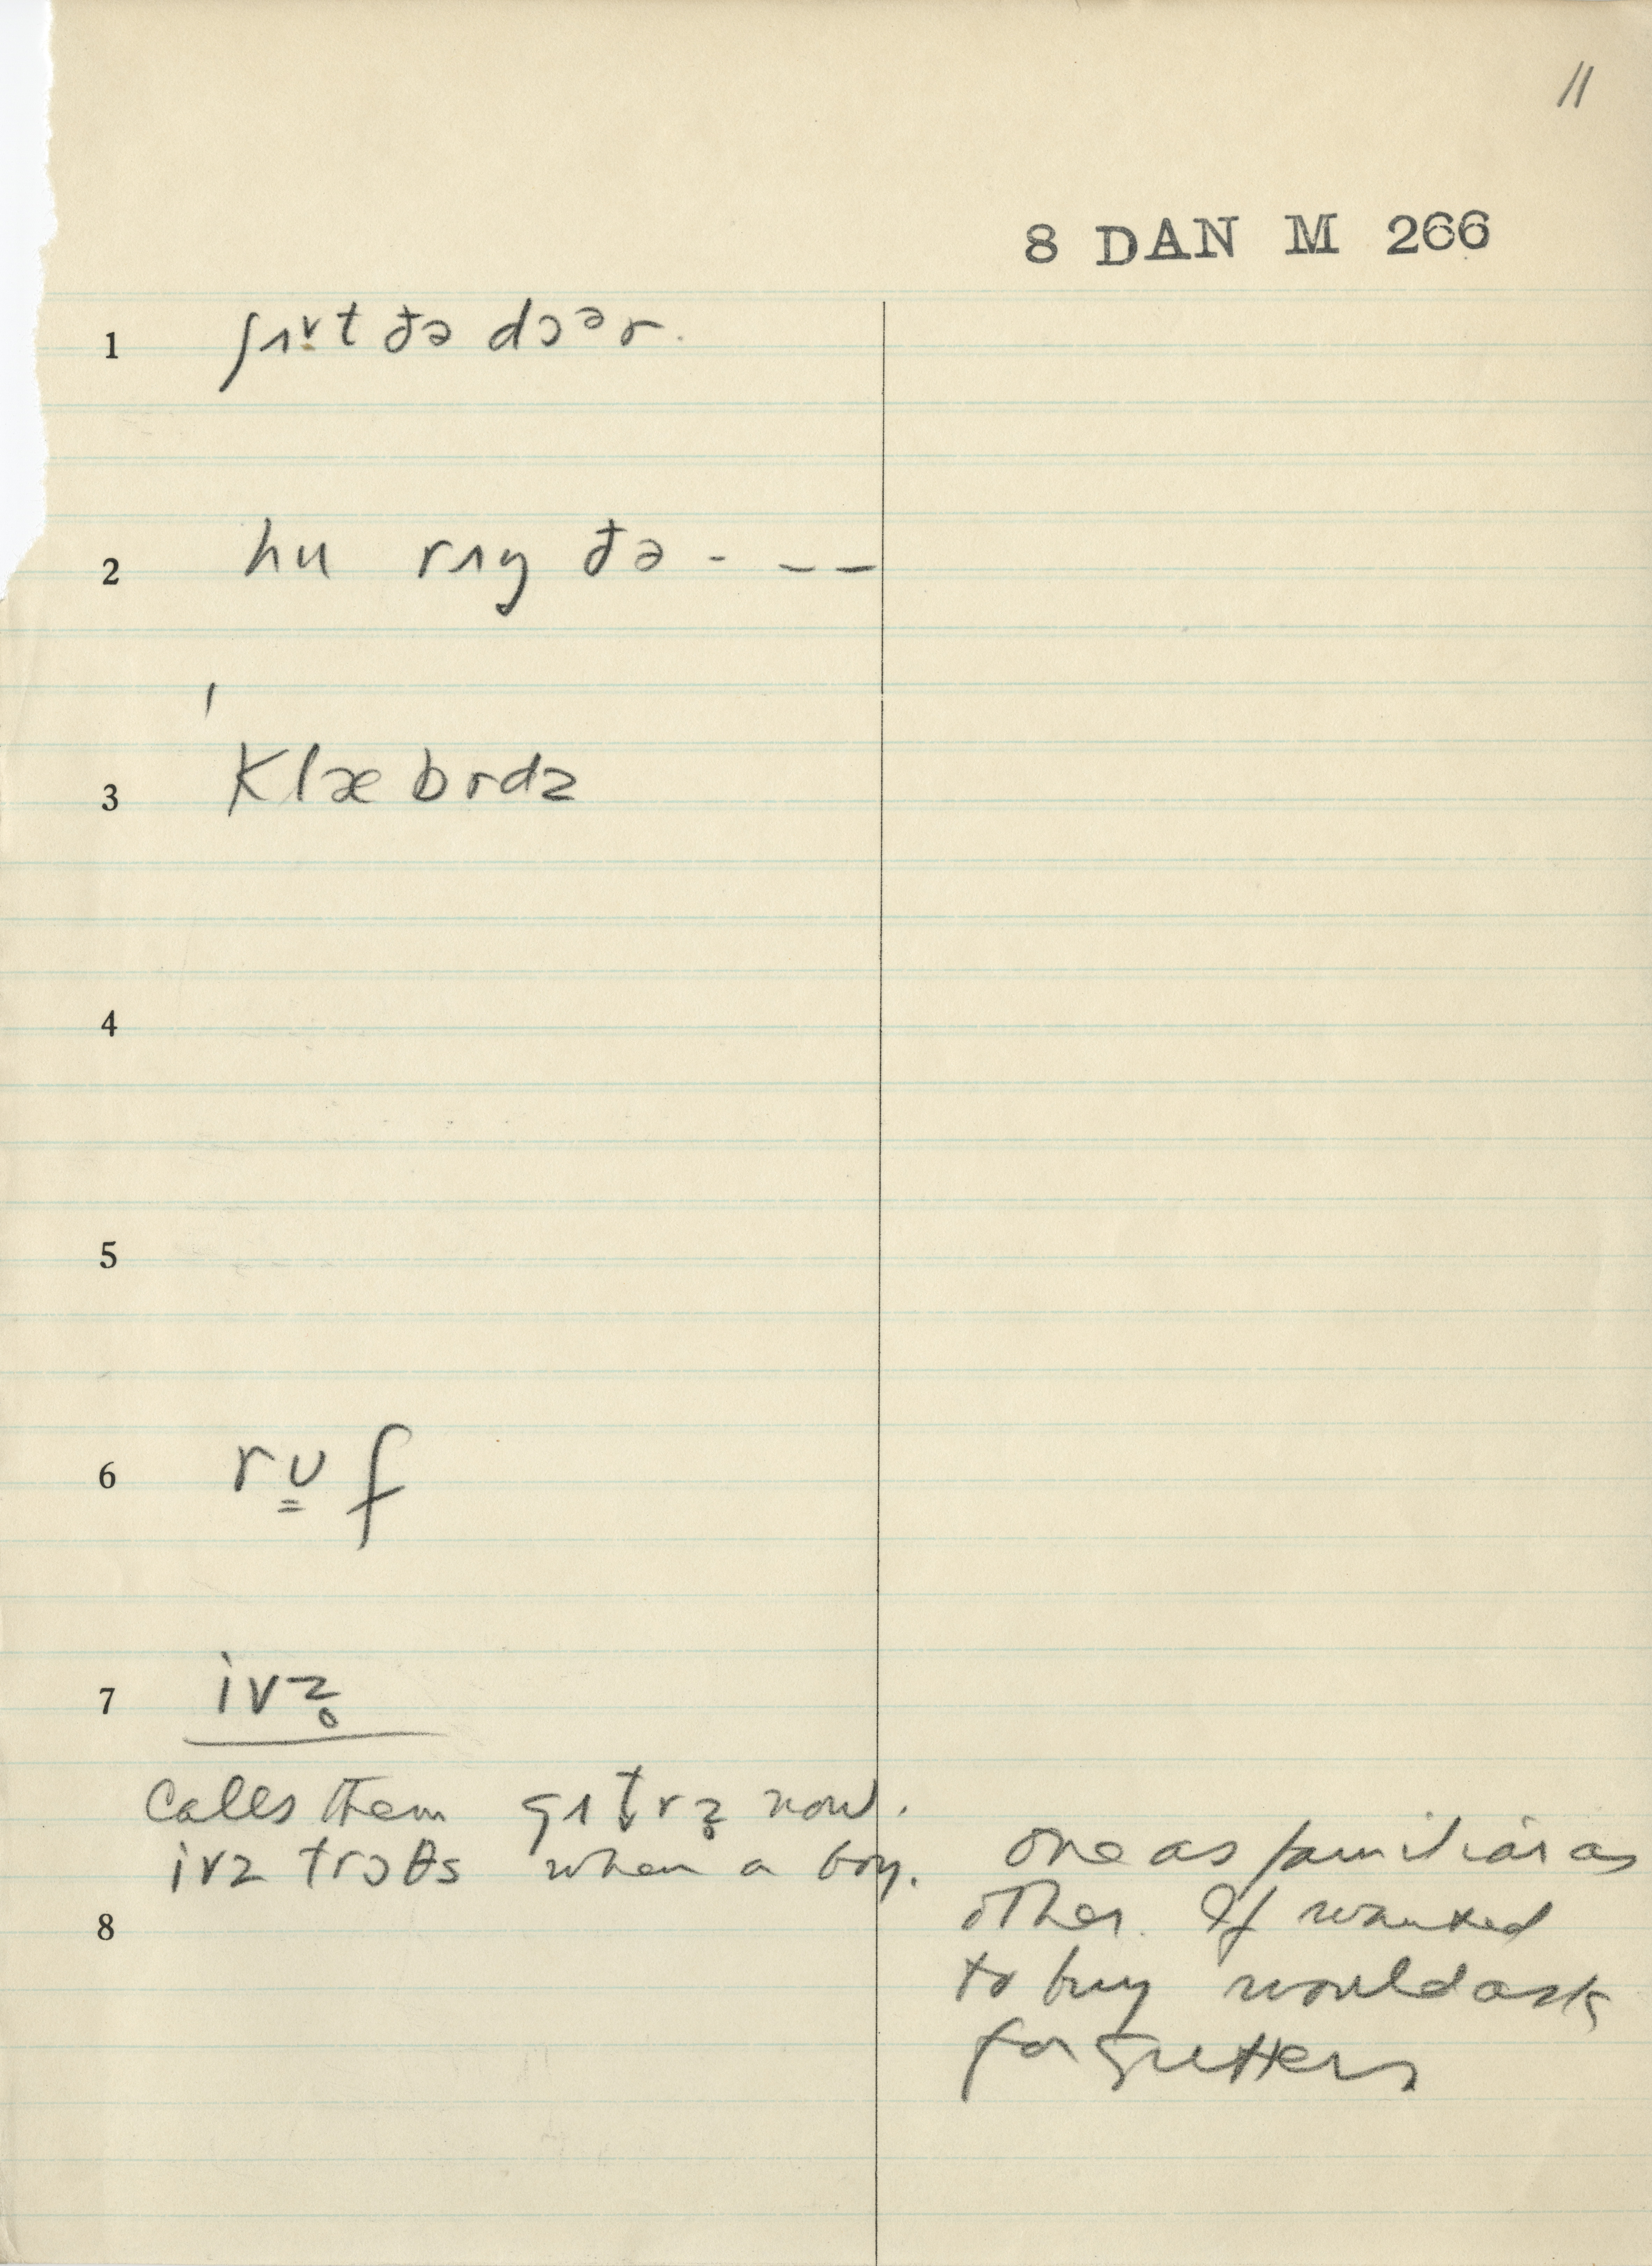 11
8 DAN M 266
1 ʃɪᵛt ðə dɔᵊr.
2 hu rɪŋ ðə - — —
3 ˈklæbrdz
4
5
6 rʊ̳f
7 ivz̥
calls them gɪt̬rz̥ now.
ivz trɔθs when a boy.
8
one as familiar as
other. If wanted
to buy would ask
for gutters